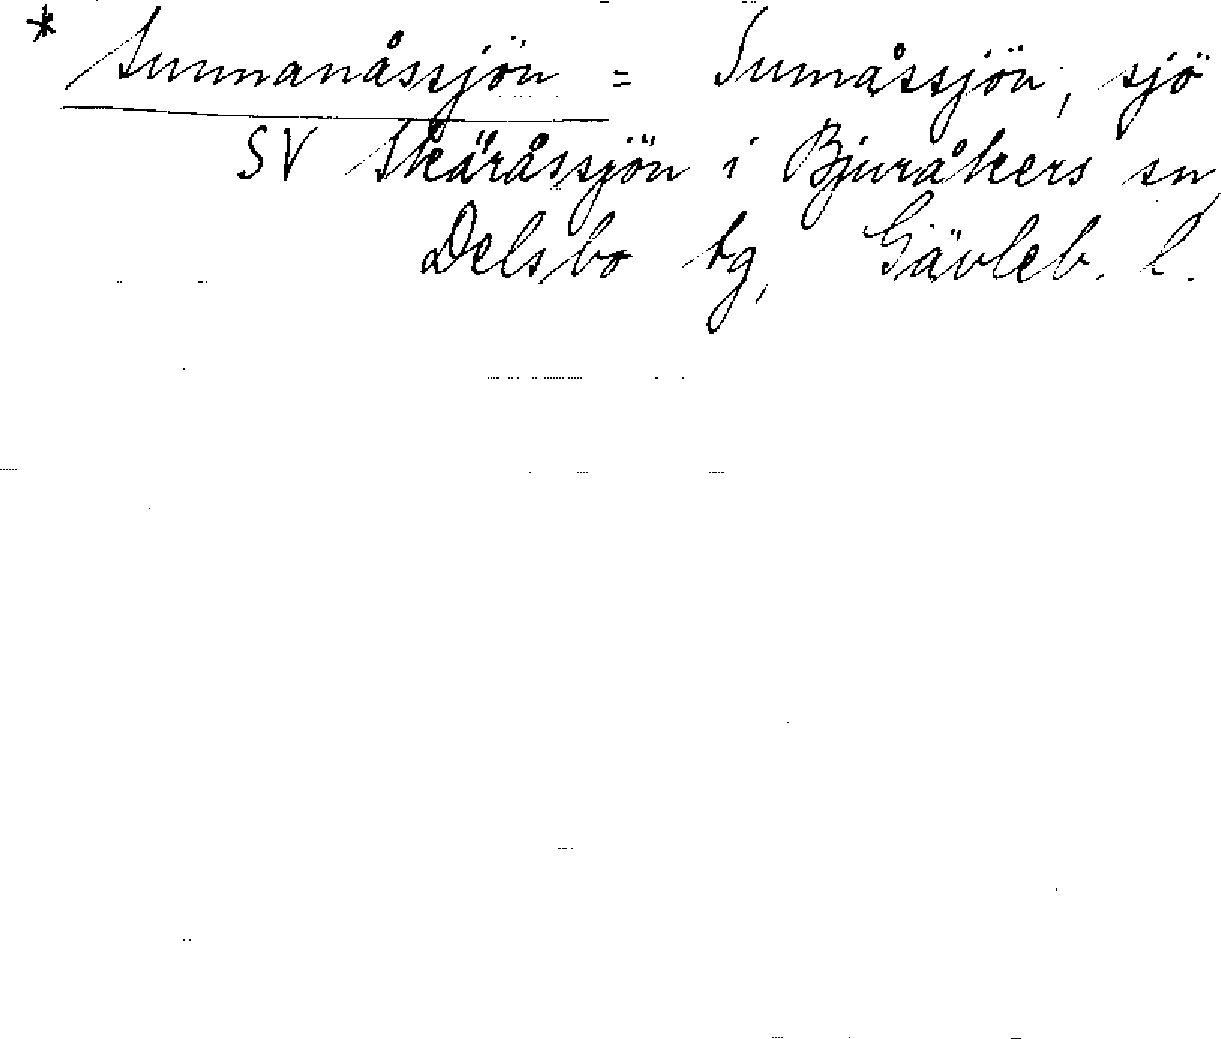 * Sunnanåssjön = Sumåssjön, sjö
SV Skäråssjön i Bjuråkers sn,
Delsbo tg, Gävleb. l.